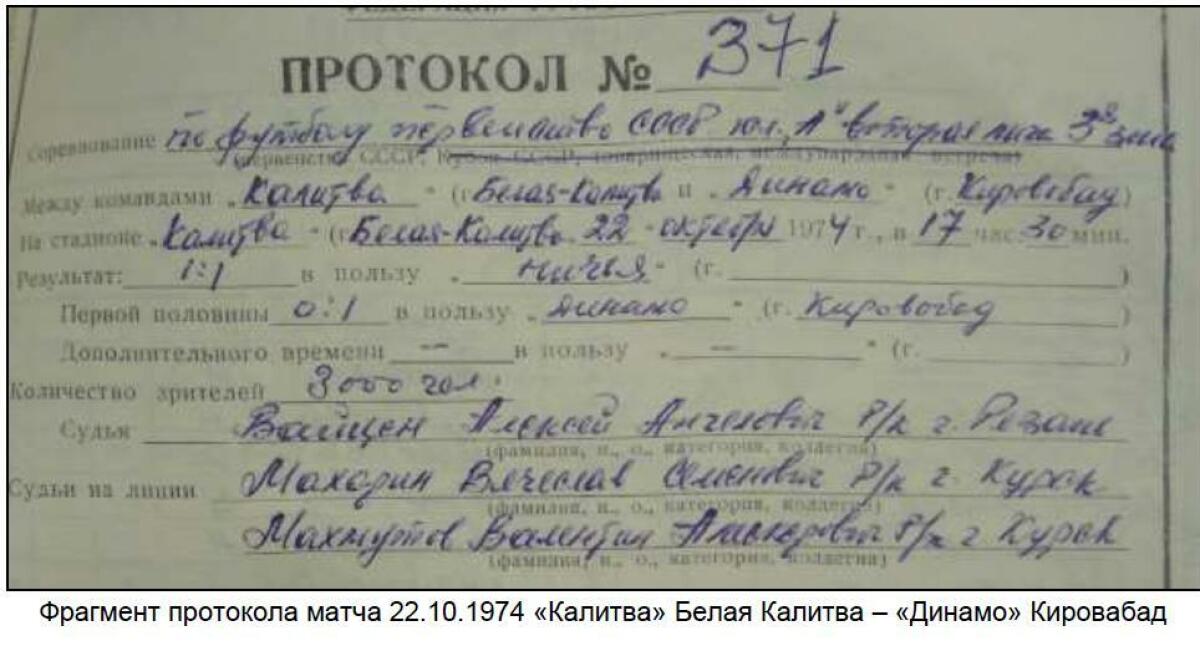 ПРОТОКОЛ № 371
Соревнование по футболу первенство СССР кл. "А" вторая лига 3ая зона
(первенство СССР, Кубок СССР, товарищеская, международная встреча)
Между командами „Калитва" (г. Белая-Калитва и „Динамо" (г. Кировобад)
На стадионе „Калитва" (г. Белая-Калитва 22 октября 1974 г., в 17 час. 30 мин.
Результат: 1:1 в пользу „ничья" (г. )
Первой половины 0:1 в пользу „Динамо" (г. Кировобад)
Дополнительного времени — в пользу „ — " (г. )
Количество зрителей 3000 чел.
Судья Вайцен Алексей Ангелович Р/к г. Рязань
(фамилия, и., о., категория, коллегия)
Судьи на линии Махорин Вячеслав Семенович Р/к г. Курск
(фамилия, и., о., категория, коллегия)
Махмутов Валентин Р/к г Курск
(фамилия, и., о., категория, коллегия)
Фрагмент протокола матча 22.10.1974 «Калитва» Белая Калитва – «Динамо» Кировабад